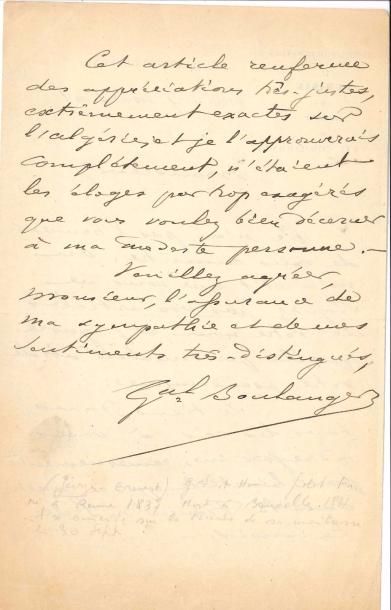 Cet article renferme
des appréciations très-justes,
extrêmement exactes sur
l'algérie, et je l'approuverais
complètement, n'étaient
les éloges par trop exagérés
que vous voulez bien décerner
à ma modeste personne. —
Veuillez agréer,
Monsieur, l'assurance de
ma sympathie et de mes
sentiments très-distingués,
Gal Boulanger
(Georges Ernest)
né à Rennes 1837 Mort à Bruxelles 1891
sur la
le 30 Sept.